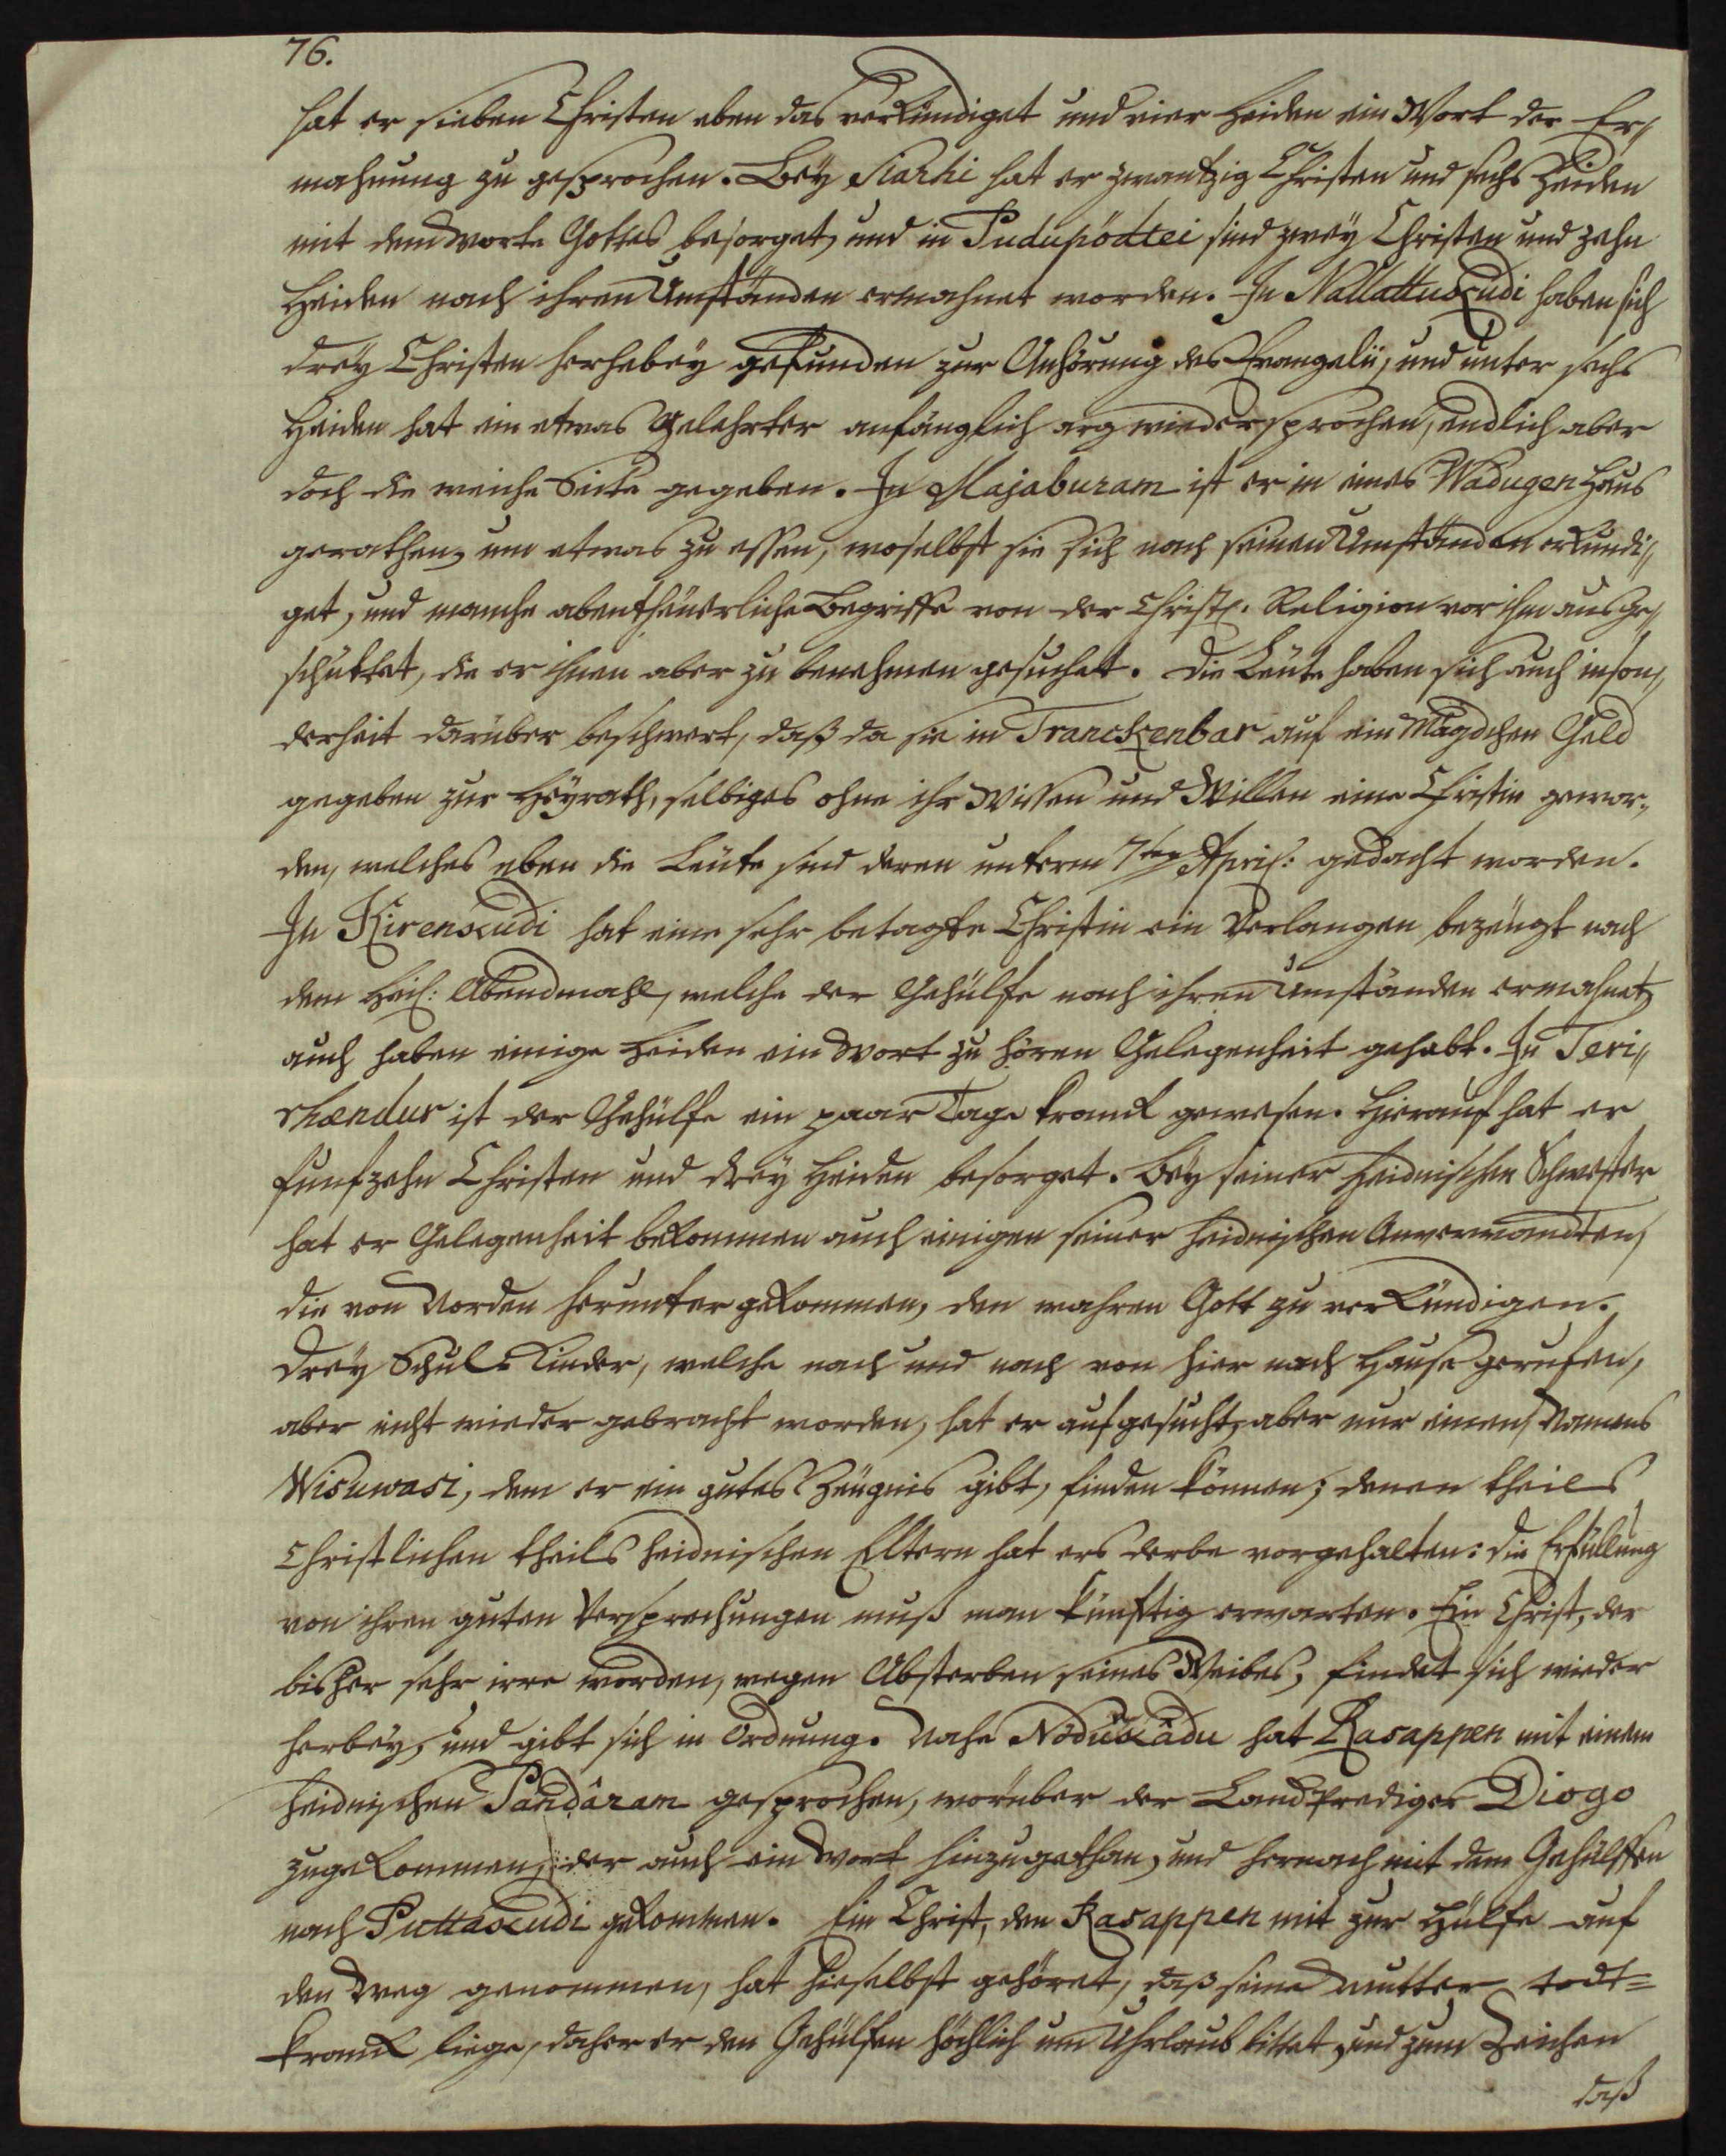 76.
hat er sieben Christen eben das verkündiget und vier Heiden ein Wort der Er//
mahnung zu gesprochen. Bey Siarhi hat er zwantzig Christen und sechs Heiden
mit dem Worte Gottes besorget, und in Pudupödtei sind zwey Christen und zehn
Heiden nach ihren Umständen ermahnet worden. In Nallattukudi haben sich
drey Christen herhebey gefunden zur Anhörung des Evangelii, und unter sechs
Heiden hat ein etwas Gelehrter anfänglich arg wiedersprochen, endlich aber
doch die weiche Seite gegeben. In Majaburam ist er in eines Wadugen Haus
gerathen, um etwas zu essen, woselbst sie sich nach seinen Umständen erkundi//
get, und manche abentheuerliche Begriffe von der Christl. Religion vor ihm ausge//
schüttet, die er ihnen aber zu benehmen gesuchet. Die Leute haben sich auch inson//
derheit darüber beschwert, daß da sie in Tranckenbar auf ein Mägdchen Geld
gegeben zur Heyrath, selbiges ohne ihr Wissen und Willen eine Christin gewor//
den, welches eben die Leute sind deren unterm 7ten April: gedacht worden.
In Kirenkudi hat eine sehr betagte Christin ein Verlangen bezeugt nach
dem Heil: Abendmahl, welche der Gehülfe nach ihren Umständen ermahnet,
auch haben einige Heiden ein Wort zu hören Gelegenheit gehabt. In Teri//
rhændur ist der Gehülfe ein paar Tage kranck gewesen. Hierauf hat er
funfzehn Christen und drey Heiden besorget. Bey seiner heidnischen Schwester
hat er Gelegenheit bekommen auch einigen seiner heidnischen Anverwandten,
die von Norden herunter gekommen, den wahren Gott zu verkündigen.
Drey Schul-Kinder, welche nach und nach von hier nach Hause gerufen,
aber nicht wieder gebracht worden, hat er aufgesucht, aber nur einen, Namens
Wisuwasi, dem er ein gutes Zeugnis gibt, finden können; denen theils
Christlichen theils heidnischen Eltern hat ers derbe vorgehalten: die Erfüllung
von ihren guten Versprechungen muß man künftig erwarten. Ein Christ, der
bisher sehr irre worden, wegen Absterben seines Weibes, findet sich wieder
herbey, und gibt sich in Ordnung. Nahe Nödukâdu hat Rasappen mit einem
heidnischen Pandâram gesprochen, worüber der Landprediger Diogo
zugekommen, der auch ein Wort hinzugethan, und hernach mit dem Gehülffen
nach Puttakudi gekommen. Ein Christ, den Rasappen mit zur Hülfe auf
den Weg genommen, hat hieselbst gehöret, daß seine Mutter todt=
kranck liege, daher er den Gehülfen höchlich um Uhrlaub bittet, und zum Zeichen
daß